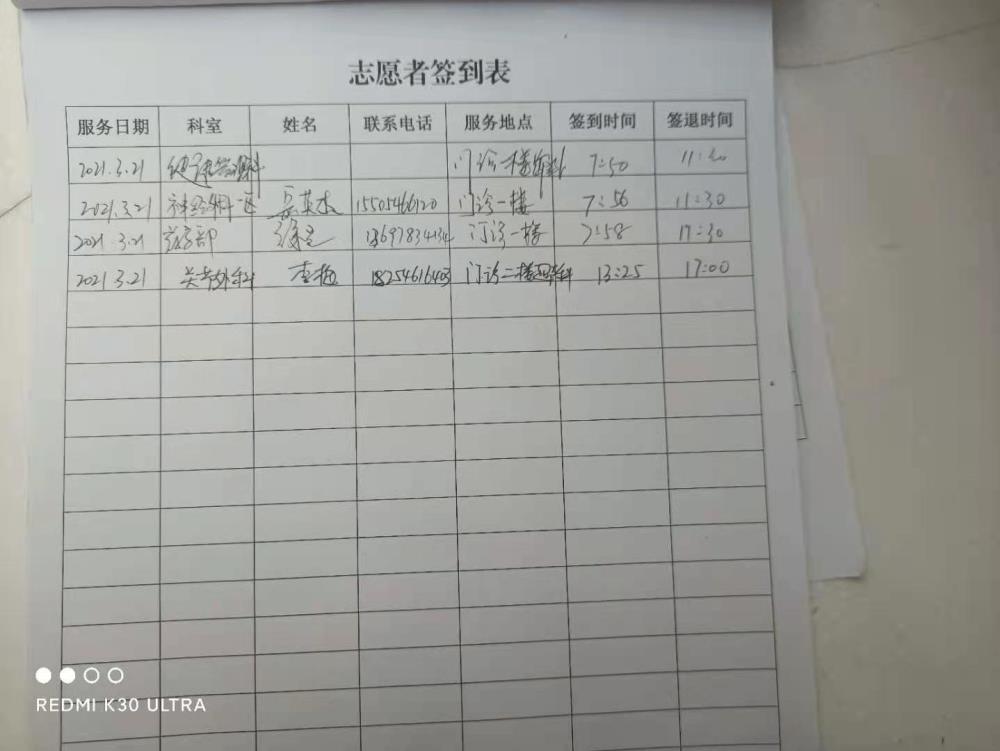 志愿者签到表
服务日期 科室 姓名 联系电话 服务地点 签到时间 签退时间
2021.3.21 健康管理科 门诊一楼 7:50 11:30
2021.3.21 神经外科一区 15505466120 门诊一楼 7:56 11:30
2021.3.21 药学部 门诊一楼 7:58 11:30
2021.3.21 关节外科 李梅 18254616403 门诊二楼 13:25 17:00
REDMI K30 ULTRA